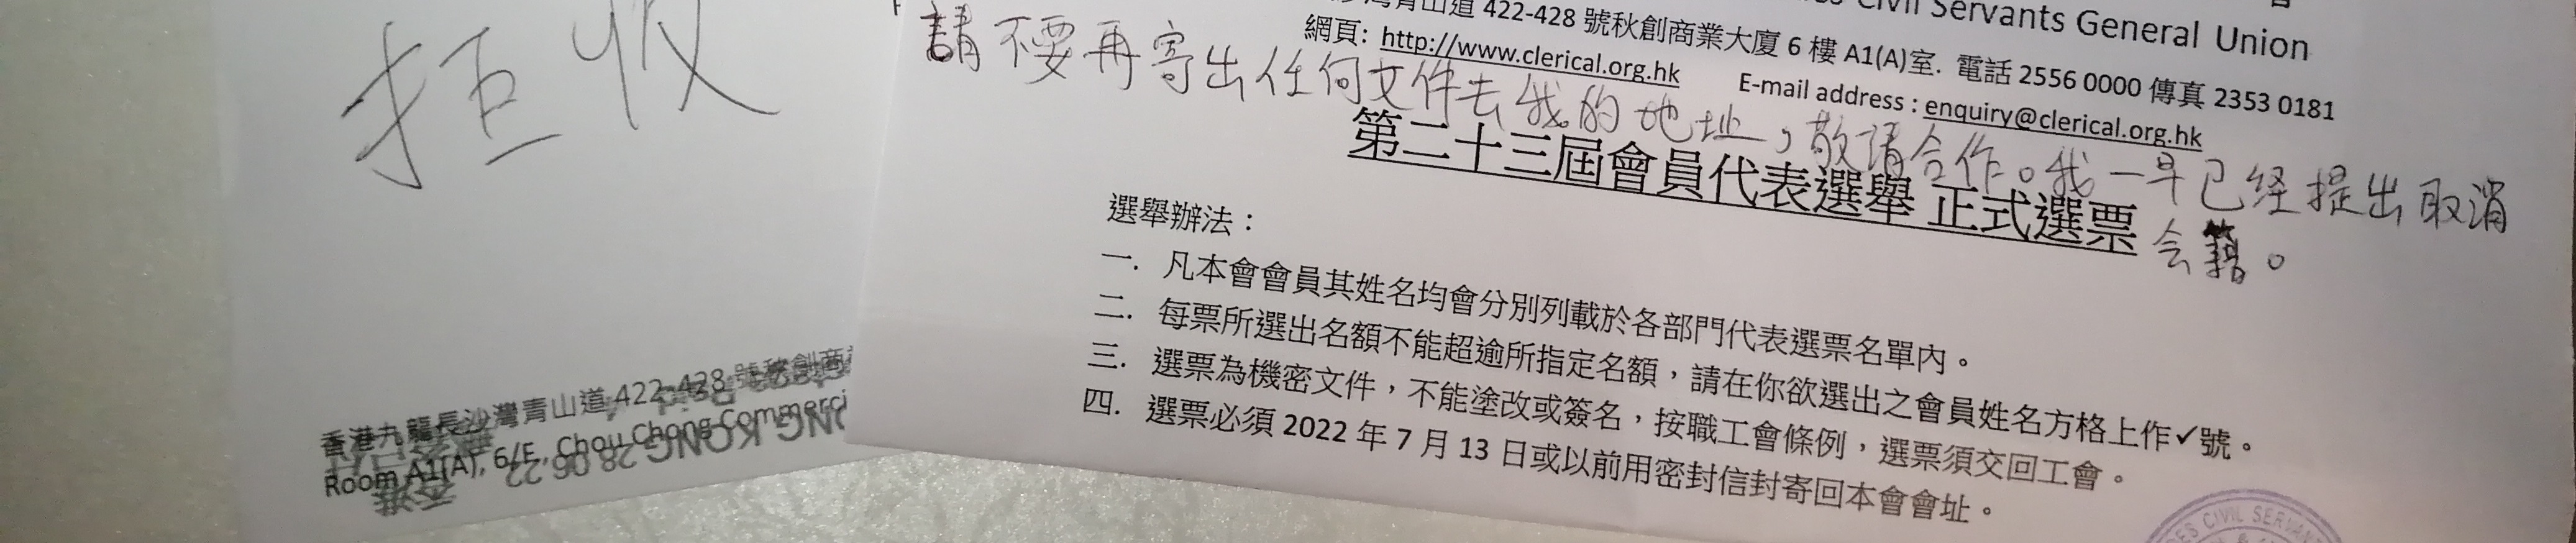 拒收
香港九龍長沙灣青山道 422-428 號秋創商
Room A1(A), 6/F., Chou Chong Commerci
HONG KONG 28.06.22
香港
Civil Servants General Union
青山道 422-428 號秋創商業大廈 6 樓 A1(A)室. 電話 2556 0000 傳真 2353 0181
網頁: http://www.clerical.org.hk E-mail address : enquiry@clerical.org.hk
請不要再寄出任何文件去我的地址,敬請合作。我一早已経提出取消
会籍。
第二十三屆會員代表選舉 正式選票
選舉辦法：
一. 凡本會會員其姓名均會分別列載於各部門代表選票名單內。
二. 每票所選出名額不能超逾所指定名額，請在你欲選出之會員姓名方格上作✓號。
三. 選票為機密文件，不能塗改或簽名，按職工會條例，選票須交回工會。
四. 選票必須 2022 年 7 月 13 日或以前用密封信封寄回本會會址。
CIVIL SERVANT